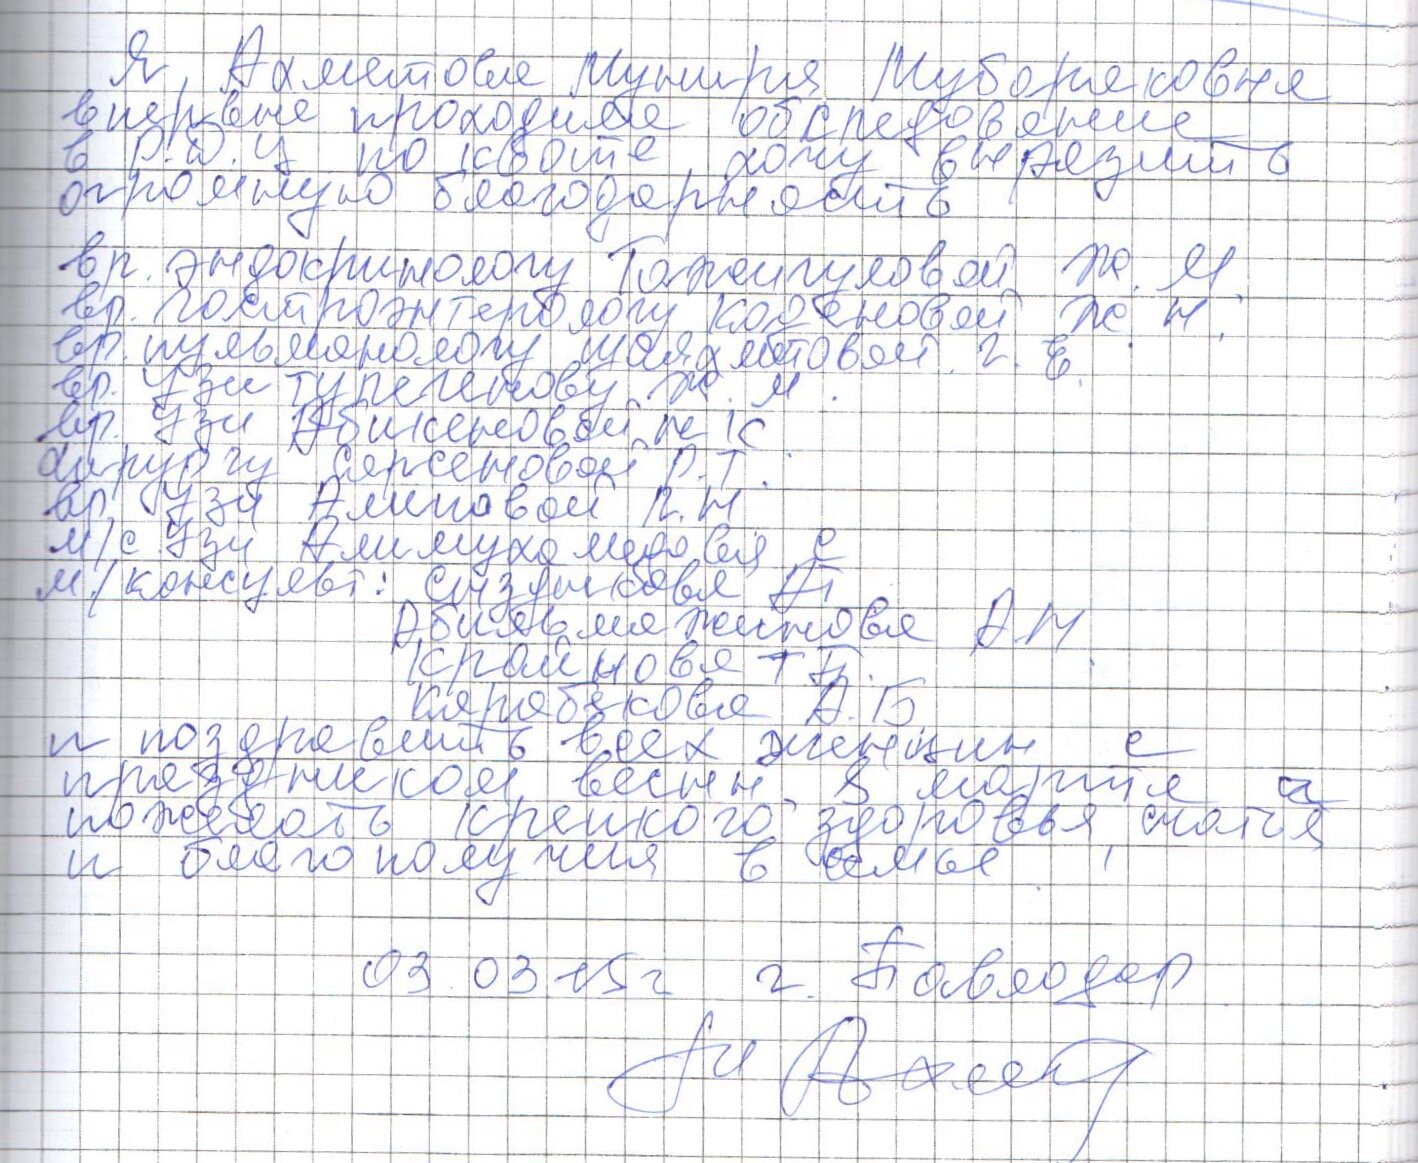 Я, Ахметова Мунира Мубараковна
впервые проходила обследование
в Р.Д.Ц по квоте хочу выразить
огромную благодарность
вр. эндокринологу Тажигуловой Ж.М.
вр. гастроэнтерологу Каденовой Ж.Н.
вр. пульманологу Шаяхметовой Г.Е.
вр. Узи Турегенову Ж.М.
вр. Узи Абикеновой Н К
Хирургу Серсеновой Р.Т.
вр. Узи Алиповой Р.Н
м/с Узи Алимухамедова С
м/консульт: Сыздыкова АТ
Абильмажинова А.М.
Крайнова Т
Карабекова А.Б
и поздравить всех женщин с
праздником весны 8 марта и
пожелать крепкого здоровья, счатья
и благополучия в семье!
03.03.15г г. Павлодар